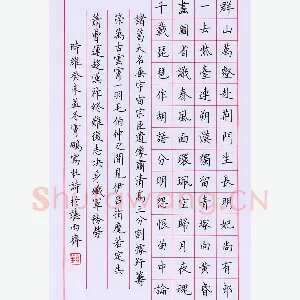 群山萬壑赴荊門生長明妃尚有邨
一去紫臺連朔漠獨留青塚向黃昏
畫圖省識春風面環珮空歸月夜魂
千載琵琶作胡語分明怨恨曲中論
諸葛大名垂宇宙宗臣遺像肅清高三分割據紆籌
策萬古雲霄一羽毛伯仲之間見伊呂指揮若定失
蕭曹運移漢祚終難復志決身殲軍務勞
時維癸未孟冬寶鵬寫杜詩於雨齋